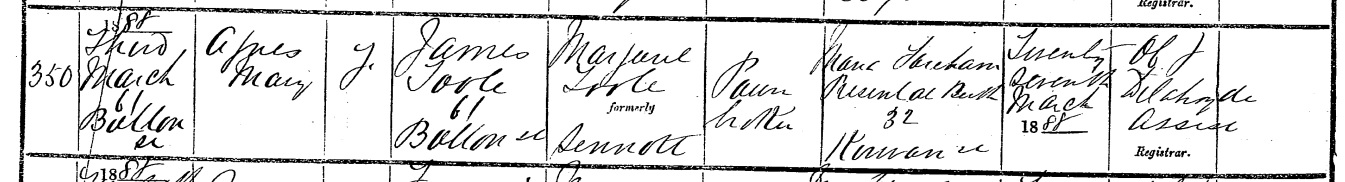 Registrar.
350
1888
Third
March
61
Bolton
St
Agnes
Mary
f.
James
Toole
61
Bolton St
Marjane
Toole
formerly
Sennott
Pawn
broker
Maria Fareham
Present at Birth
32
Kirwan St
Twenty
seventh
March
1888
Of J
Delahoyde
Assist
Registrar.
188